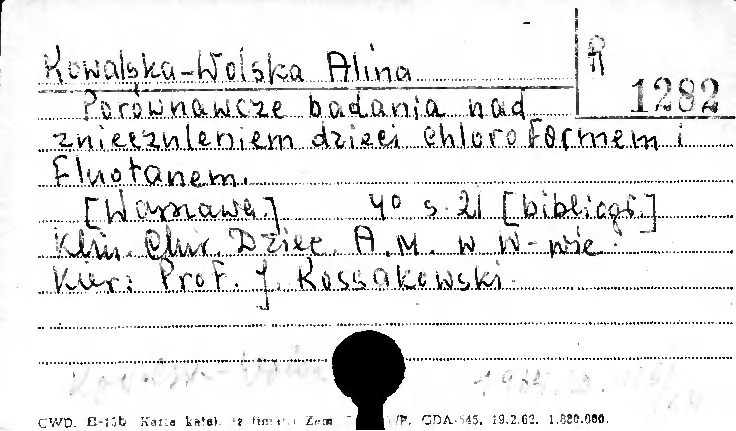 Kowalska-Wolska Alina
R 1282
Porównawcze badania nad
znieczuleniem dzieci chloroformem i
Fluotanem.
[Warszawa] 4° s. 21 [bibliogr.]
Klin. Chir. Dziec. A.M. w W-wie.
Kier: Prof. J. Kossakowski.
Kowalska-
CWD. Karta katal. GDA-545, 19.2.62. 1.880.000.